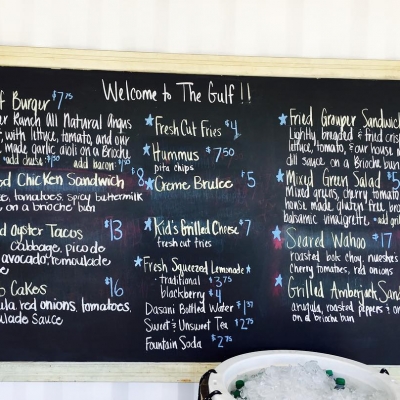 Welcome to The Gulf !!
f Burger $7.75
er Ranch All Natural Angus
f, with lettuce, tomato, and our
made garlic aioli on a Brioche
add cheese
add bacon
ed Chicken Sandwich $8
e, tomatoes, spicy buttermilk
e, on a brioche bun
d Oyster Tacos $13
cabbage, pico de
avocado, remoulade
b Cakes $16
ula, red onions, tomatoes,
oulade sauce
Fresh Cut Fries $4
Hummus $7.50
pita chips
Creme Brulee $5
Kid's Grilled Cheese $7
fresh cut fries
Fresh Squeezed Lemonade
- traditional $3.75
blackberry $4
Dasani Bottled Water
Sweet & Unsweet Tea $2.75
Fountain Soda $2.75
Fried Grouper Sandwich
Lightly breaded & fried crisp
lettuce, tomato, & our house m
dill sauce on a Brioche bun
Mixed Green Salad $5
Mixed greens, cherry tomato
house made gluten free bro
balsamic vinaigrette
Seared Wahoo $17
roasted bok choy, nueske's
cherry tomatoes, red onions
Grilled Amberjack Sand
arugula, roasted peppers & on
on a brioche bun